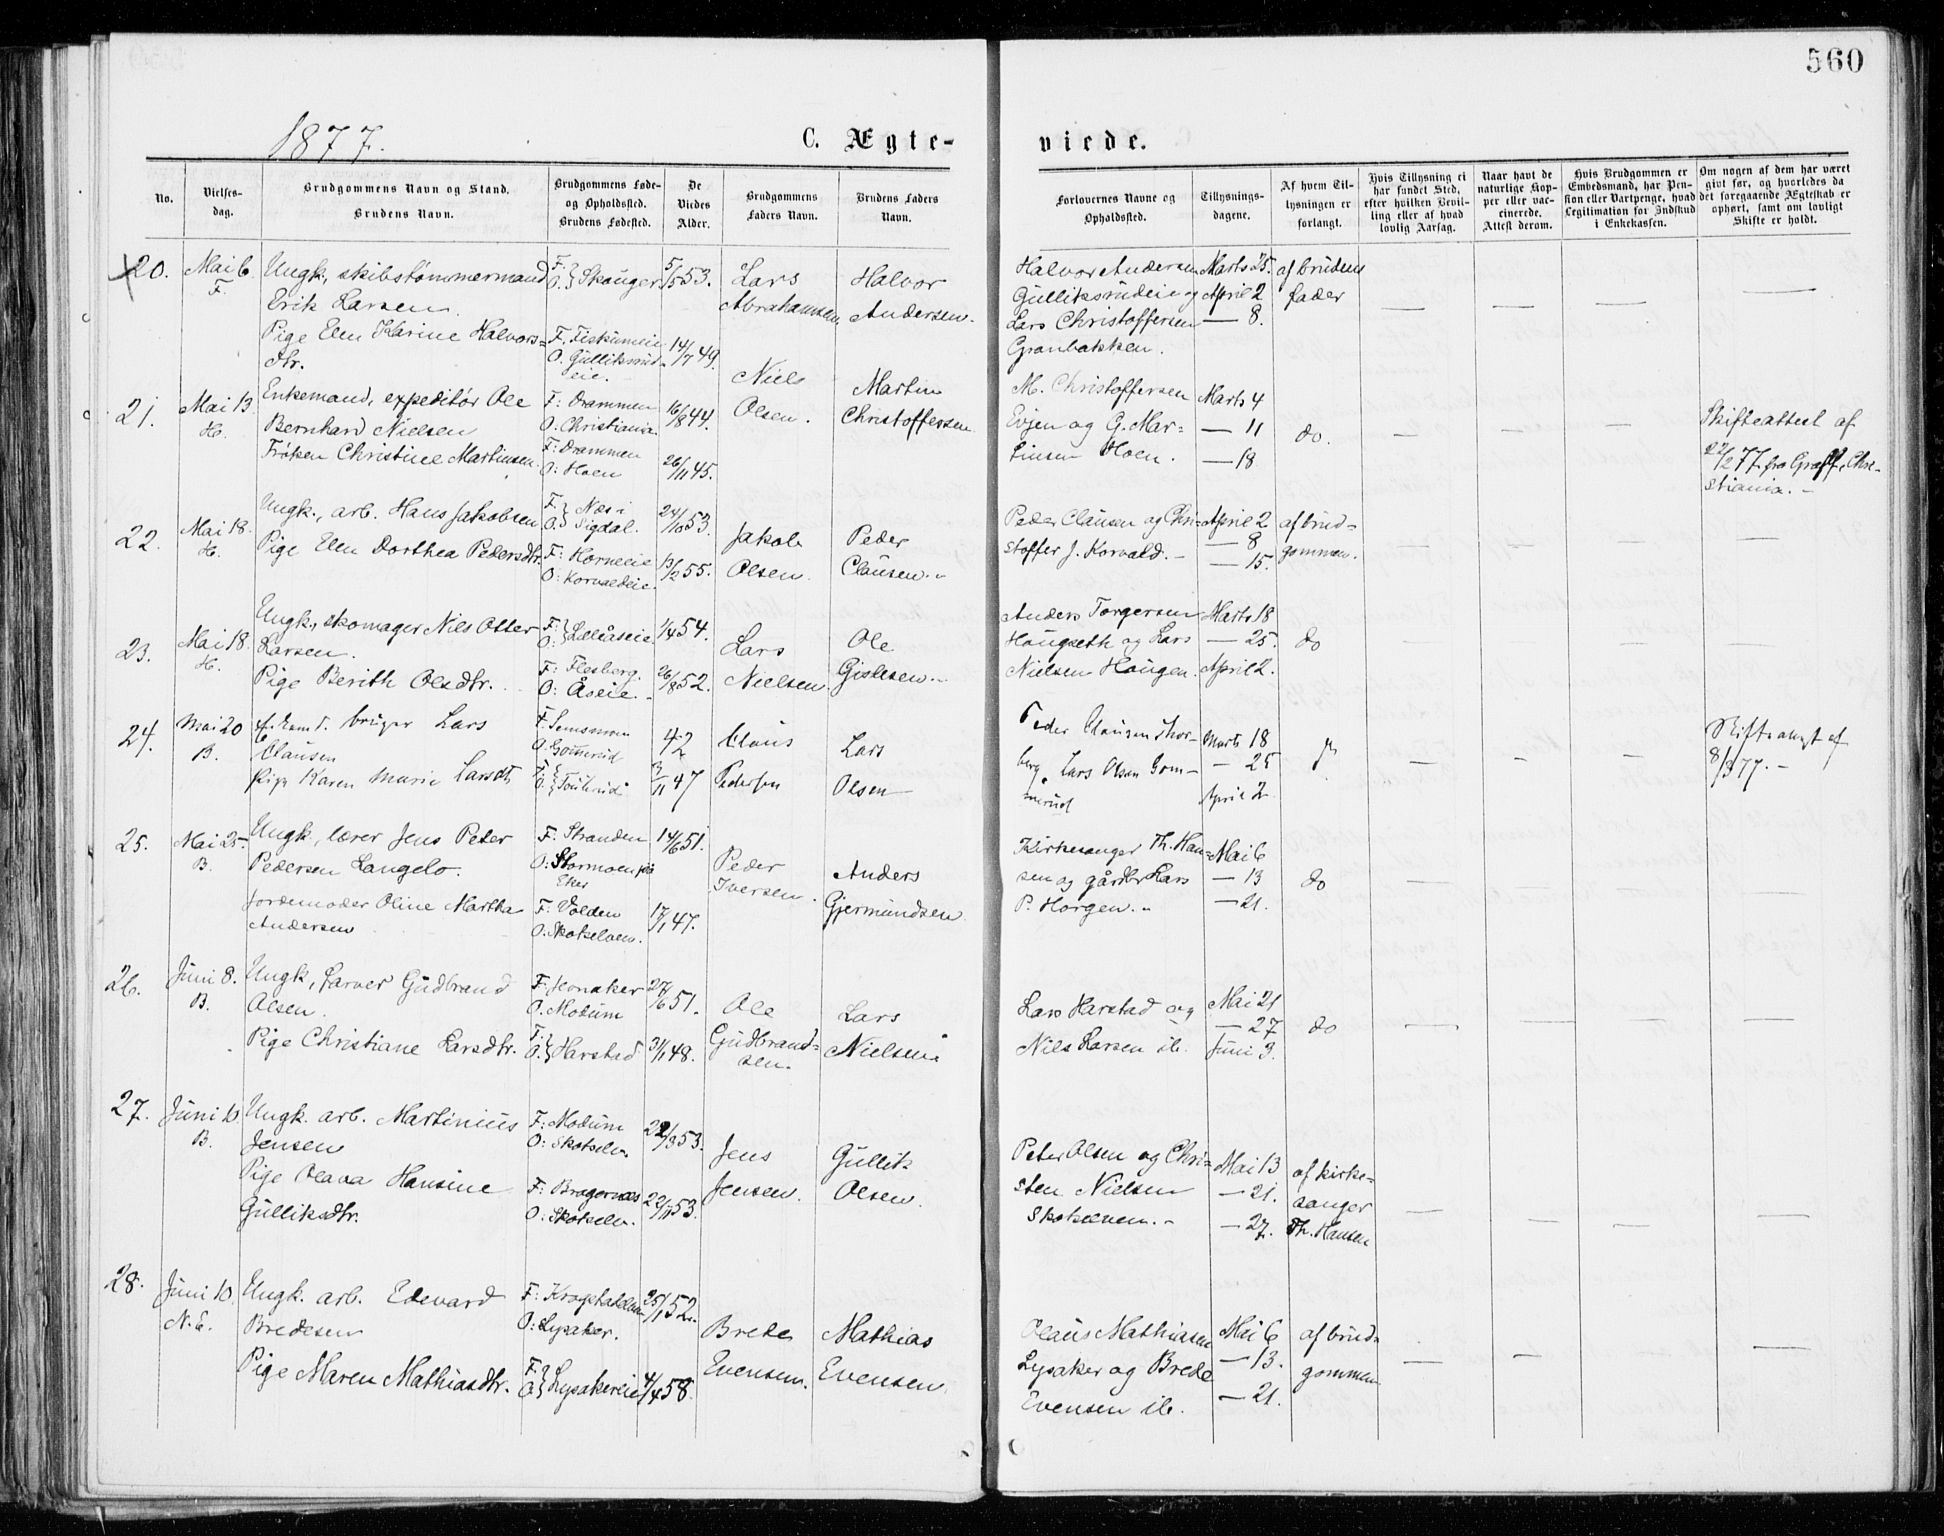 560
1877.
C. Ægte-
viede.
No.
Vielses-
dag.
Brudgommens Navn og Stand.
Brudens Navn.
Brudgommens Føde-
og Opholdssted.
Brudens Fødested.
De
Viedes
Alder.
Brudgommens
Faders Navn.
Brudens Faders
Navn.
Forlovernes Navne og
Opholdssted.
Tillysnings-
dagene.
Af hvem Til-
lysningen er
forlangt.
Hvis Tillysning ei
har fundet Sted,
efter hvilken Bevil-
ling eller af hvad
lovlig Aarsag.
Naar havt de
naturlige Kop-
per eller vac-
cinerede.
Attest derom.
Hvis Brudgommen er
Embedsmand, har Pen-
sion eller Vartpenge, hvad
Legitimation for Indskud
i Enkekassen.
Om nogen af dem har været
gift før, og hvorledes da
det foregaaende Ægteskab er
ophørt, samt om lovligt
Skifte er holdt.
20.
Mai 6
F.
Ungk., skibstømmermand
Erik Larsen.
Pige Elen Karine Halvors=
dtr.
F.
O. } Skouger
F. Fiskumeie
O. Gulliksrud-
eie.
5/5 53.
14/7 49.
Lars
Abrahamsen
Halvor
Andersen.
Halvor Andersen
Gulliksrudeie og
Lars Christoffersen
Granbakken.
Marts 25.
April 2
— 8.
af brudens
fader
21.
Mai 13.
H.
Enkemand, expeditør Ole
Bernhard Nielsen
Frøken Christine Martinsen.
F: Drammen
O: Christiania.
F: Drammen
O: Hoen
16/8 44.
26/11 45.
Niels
Olsen.
Martin
Christoffersen
M. Christoffersen
Evjen og G. Mar=
tinsen Hoen.
Marts 4
— 11
— 18
do.
Skifteattest af
22/2 77 fra Graff, Chri-
stiania. -
22.
Mai 18.
H.
Ungk., arb. Hans Jakobsen
Pige Elen Dorthea Pedersdtr.
F:
O: } Næs i
Sigdal.
F: Horneeie
O: Korvaldeie.
24/10 53.
13/2 55.
Jakob
Olsen.
Peder
Clausen. -
Peder Clausen og Chri=
stoffer J. Korvald. -
April 2
— 8
— 15.
af brud=
gommen.
23.
Mai 18.
H.
Ungk., skomager Nils Otter
Larsen.
Pige Berith Olsdtr.
F:
O: } Lilleåseie
F: Flesberg.
O: Åseie. -
1/4 54.
26/8 52.
Lars
Nielsen
Ole
Gislesen. -
Anders Torgersen
Haugseth og Lars
Nielsen Haugen.
Marts 18
— 25.
April 2.
do
24.
Mai 20
B.
bruger Lars
Clausen
Pige Karen Marie Larsdt
F. Semsmoen
O. Gommerud
42
47
Claus
Pedersen
Lars
Olsen
Peder Clausen Thor-
berg, Lars Olsen Gom-
merud
Marts 18
— 25
April 2
8/3 77. -
25.
Mai 25.
B.
Ungk., lærer Jens Peter
Pedersen Langelo.
Jordemoder Oline Martha
Andersen
F: Stranden
O: Stormoen på
Eker
F: Volden
O: Skotselven.
14/6 51.
17/1 47.
Peder
Iversen.
Anders
Gjermundsen.
Kirkesanger Th. Han=
sen og gårdbr Lars
P. Horgen. -
Mai 6
— 13
— 21.
do
26.
Juni 8.
B.
Ungk., farver Gudbrand
Olsen.
Pige Christiane Larsdtr.
F: Jevnaker
O. Modum
F.
O. } Harstad
27/6 51.
31/1 48.
Ole
Gudbrand=
sen.
Lars
Nielsen.
Lars Harstad og
Nils Larsen ib.
Mai 21
— 27
Juni 3.
do
27.
Juni 10.
B.
Ungk. arb. Martinius
Jensen
Pige Olava Hansine
Gulliksdtr.
F: Modum
O: Skotselv.
F: Bragernæs
O: Skotselv.
22/3 53.
22/11 53.
Jens
Jensen.
Gullik
Olsen.
Peter Olsen og Chri=
sten Nielsen
Skotselven. -
Mai 13
— 21.
— 27.
af kirke=
sanger
Th. Hansen
28.
Juni 10.
N. E.
Ungk. arb. Edevard
Bredesen
Pige Maren Mathiasdtr.
O: Lysaker.
F.
O. } Lysakereie
25/1 52.
4/4 58.
Brede
Evensen.
Mathias
Evensen.
Olaus Mathiasen
Lysaker og Brede
Evensen ib.
Mai 6
— 13.
— 21.
af brud=
gommen